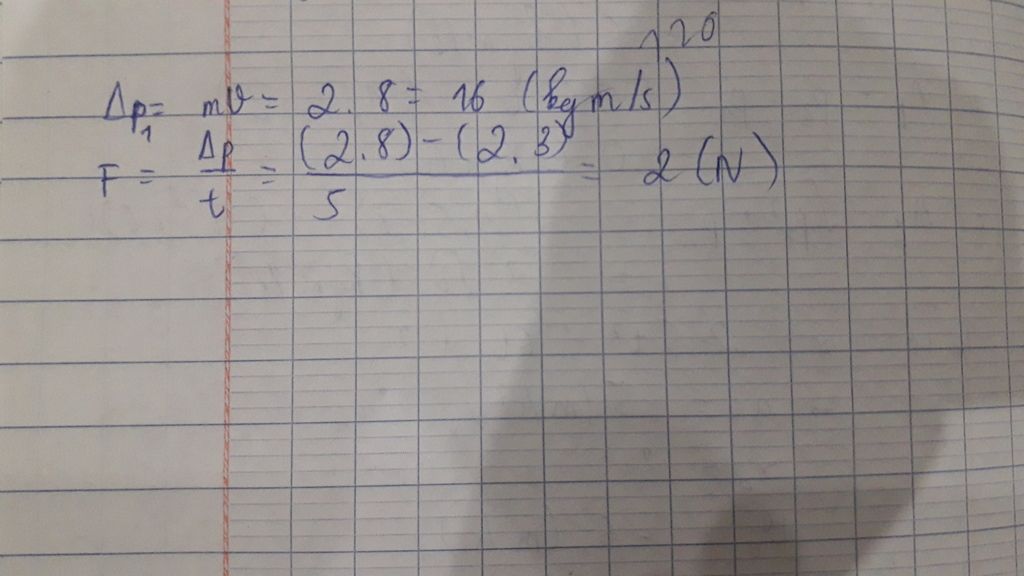 20
Δp₁ = mv = 2.8 = 16 (kgm/s)
F = Δp/t = (2.8) - (2.3)/5 = 2 (N)